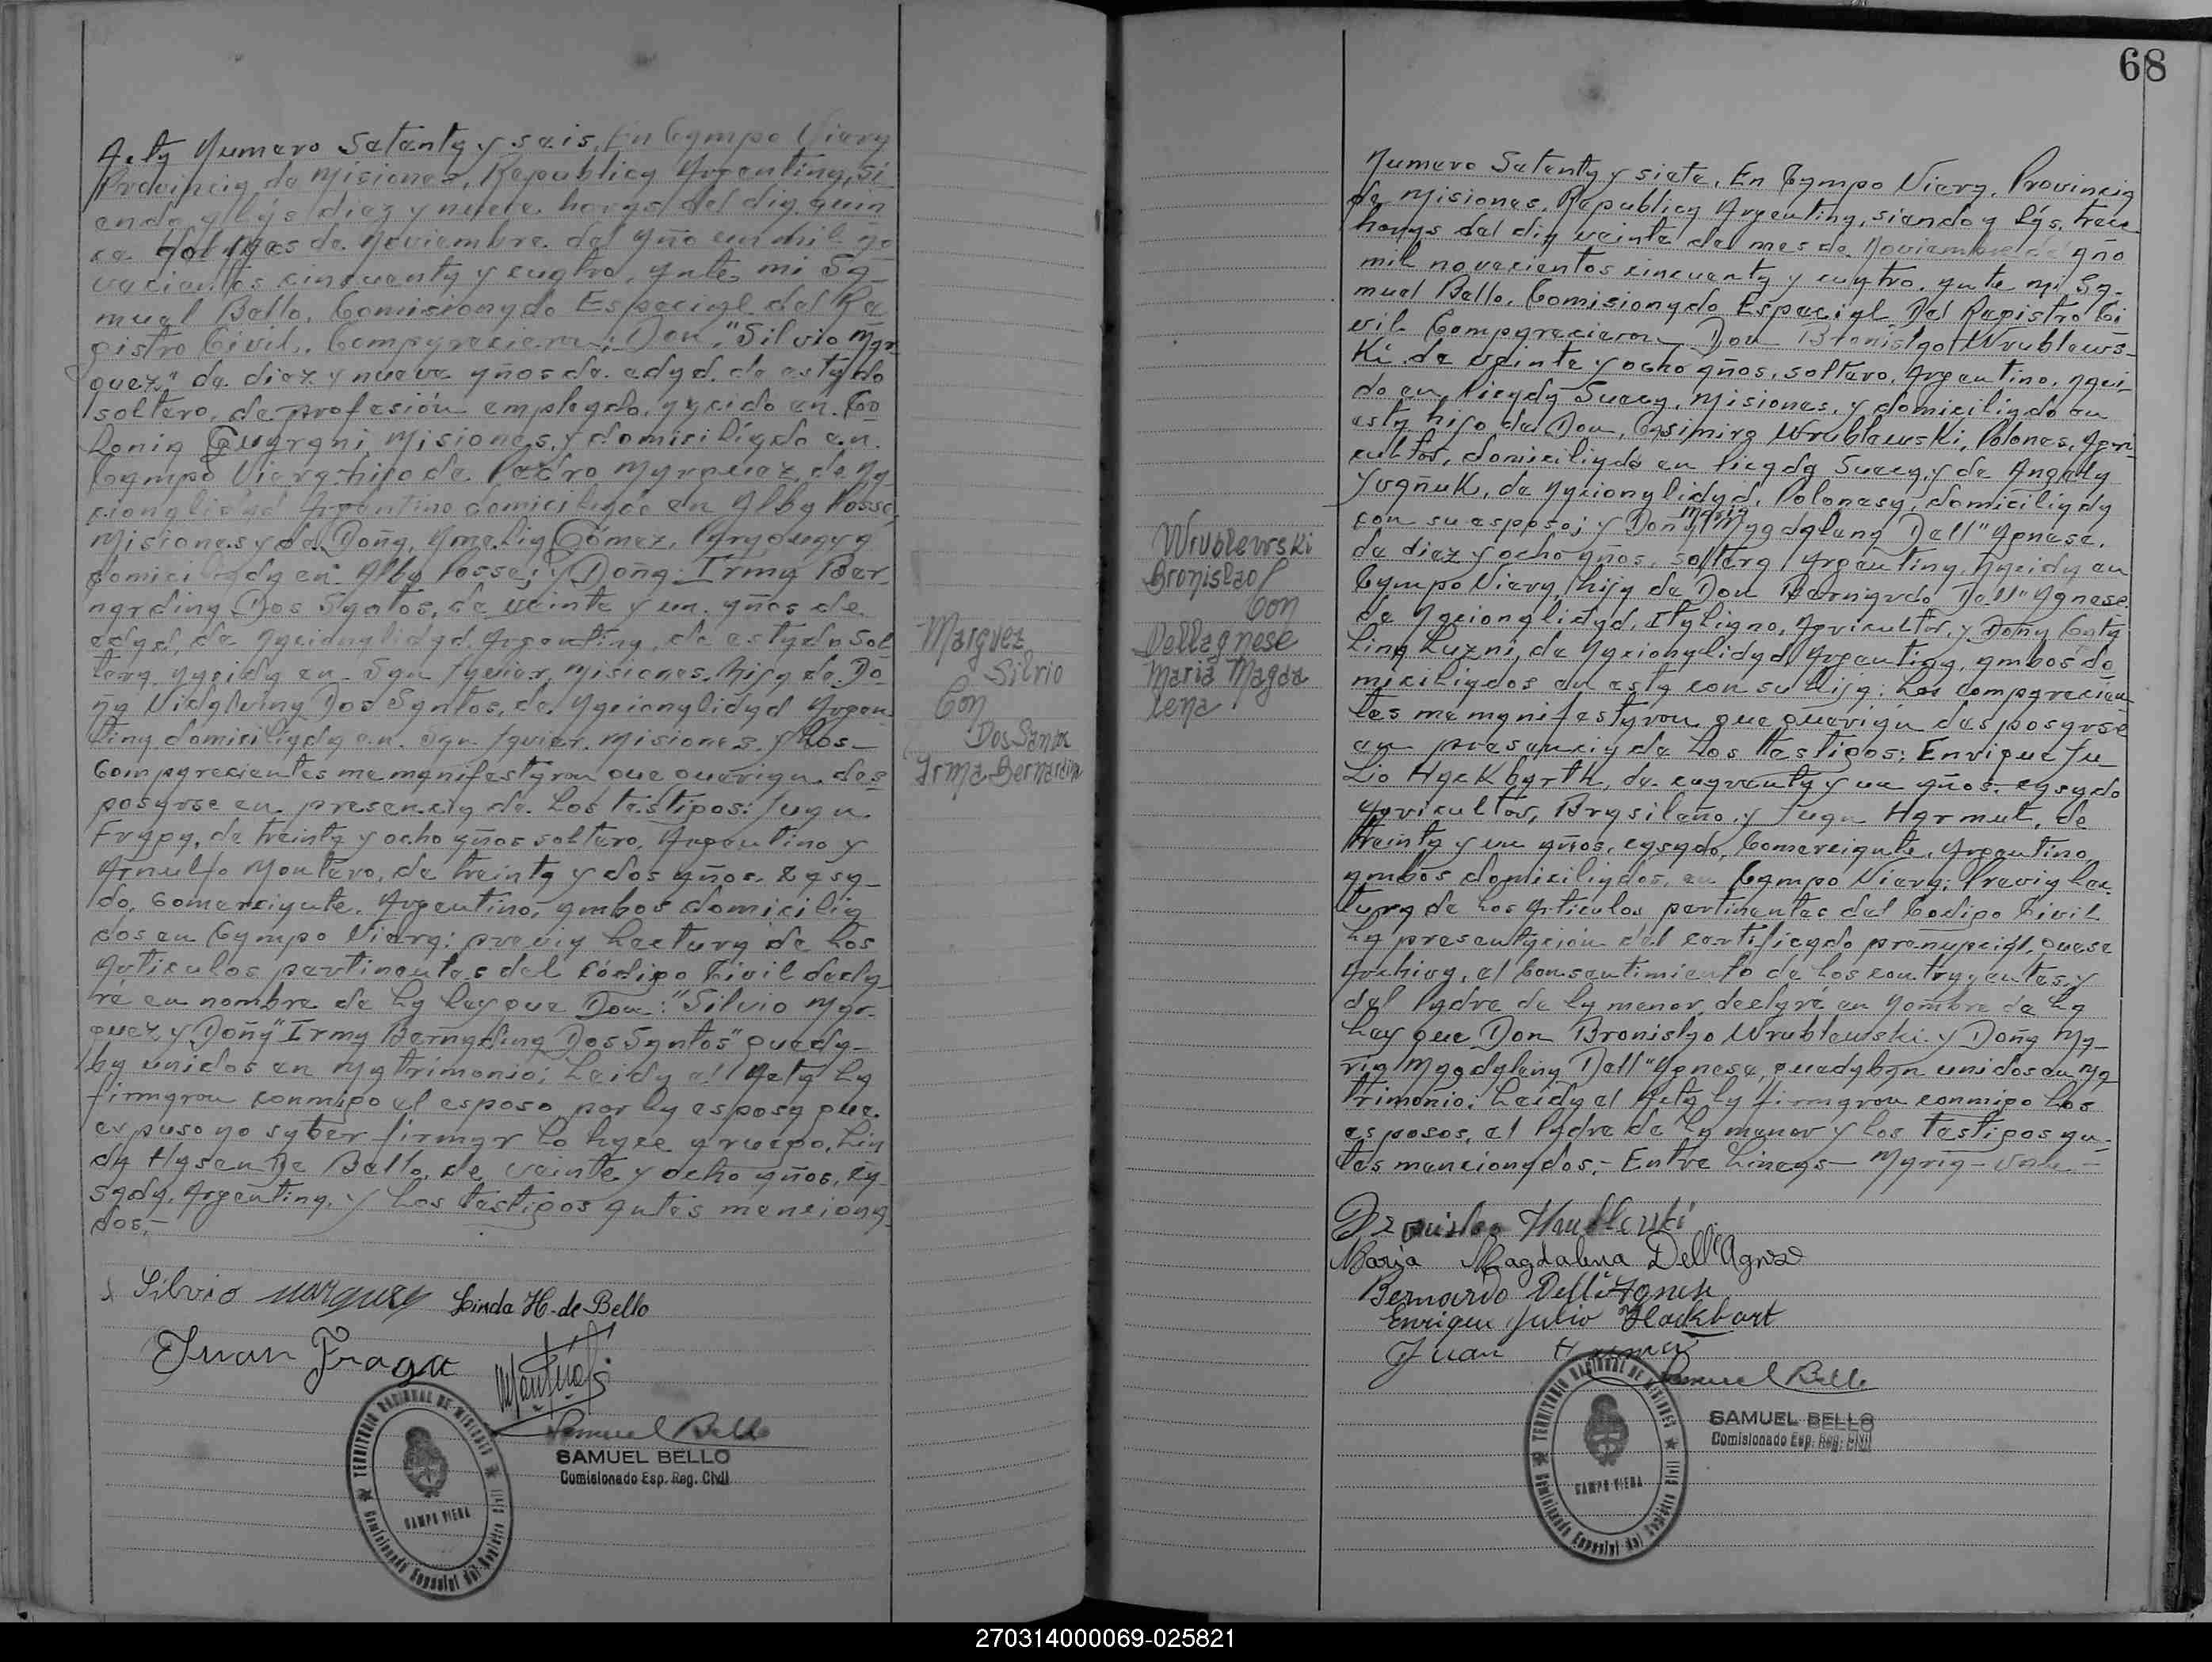 Acta Numero Setenta y seis, En Campo Viera
Provincia de Misiones, Republica Argentina, si-
endo a las diez y nueve horas del dia quin
ce del mes de Noviembre del año un mil no
vecientos cincuenta y cuatro, ante mi Sa-
muel Bello, Comisionado Especial del Re
gistro Civil, Comparecieron; Don, "Silvio Mar
quez" de diez y nueve años de edad, de estado
soltero, de profesión empleado, nacido en Co
lonia Guarani, Misiones, y domiciliado en
Campo Viera, hijo de Pedro Marquez, de na-
cionalidad Argentino domiciliado en Alba Posse,
Misiones y de Doña, Amelia Gómez, Paraguaya
domiciliada en Alba Posse; y Doña: Irma Ber-
nardina Dos Santos, de veinte y un años de
edad, de nacionalidad Argentina, de estado sol
tera nacida en San Javier, Misiones, hija de Do
ña Vidalvina Dos Santos, de Nacionalidad Argen
tina domiciliada en San Javier, Misiones y Los-
Comparecientes me manifestaron que querian des
posarse en presencia de Los testigos: Juan
Fraga, de treinta y ocho años soltero, Argentino y
Arnulfo Montero, de treinta y dos años, casa-
do, Comerciante, Argentino, ambos domicilia
dos en Campo Viera: previa Lectura de Los
Articulos pertinentes del Código Civil decla
ré en nombre de La Ley que Don: "Silvio Mar-
quez y Doña "Irma Bernadina Dos Santos" queda-
ba unidos en Matrimonio; Leida el Acta La
firmaron conmigo el esposo por la esposa que
expuso no saber firmar Lo hace a ruego, Lin
da Hasen De Bello, de veinte y ocho años, ca-
sada, Argentina, y Los testigos antes menciona
dos.-
Silvio Marquez Linda H. de Bello
Juan Fraga
Samuel Bello
SAMUEL BELLO
Comisionado Esp. Reg. Civil
TERRITORIO NACIONAL DE MISIONES
CAMPO VIERA
Comisionado Especial del Registro Civil
Marquez
Silvio
Con
Dos Santos
Irma Bernardina
68
Numero Setenta y siete, En Campo Viera, Provincia
de Misiones, Republica Argentina, siendo a las trece
horas del dia veinte del mes de Noviembre del año
mil novecientos cincuenta y cuatro, ante mi Sa-
muel Bello, Comisionado Especial Del Registro Ci
vil Comparecieron Don Bronislao Wrublews-
ki de veinte y ocho años, soltero, Argentino, naci-
do en Picada Sueca, Misiones, y domiciliado en
esta hijo de Don, Casimiro Wrublewski, Polones, Agri
cultor, domiciliado en Picada Sueca, y de Angela
Yugñuk, de nacionalidad, Polonesa, domiciliada
con su esposo; y Doña Maria Magdalena Dell"Agnese,
de diez y ocho años, soltera, Argentina, Nacida en
Campo Viera, hija de Don Bernardo Dell"Agnese
de Nacionalidad, Italiano, Agricultor, y Doña Cata
lina Luzni, de Nacionalidad Argentina, ambos do
miciliados en esta con su hija: Los comparecien
tes me manifestaron que querian desposarse
en presencia de Los testigos: Enrique Ju
lio Hackbarth, de cuarenta y un años, casado
Agricultor, Brasileño, y Juan Harmut, de
treinta y un años, casado, Comerciante, Argentino,
ambos domiciliados, en Campo Viera: Previa Lec
tura de Los Articulos pertinentes del Codigo Civil
La presentación del certificado prenupcial, que se
Archiva, el Consentimiento de Los contrayentes y
del Padre de la menor, declaré en Nombre de La
Ley que Don Bronislao Wrublewski y Doña Ma-
ria Magdalena Dell"Agnese, quedaban unidos en Ma
trimonio: Leida el Acta La firmaron conmigo Los
esposos, el Padre de La menor y los testigos an-
tes mencionados.- Entre Lineas- Maria- vale.-
Bronislao Wrublewski
Maria Magdalena Dell'Agnese
Bernardo Dell'Agnese
Enrique Julio Hackbart
Juan
Samuel Bello
SAMUEL BELLO
Comisionado Esp. Reg. Civil
TERRITORIO NACIONAL DE MISIONES
CAMPO VIERA
Comisionado Especial del Registro Civil
Wrublewski
Bronislao
Con
Dellagnese
Maria Magda
lena
270314000069-025821